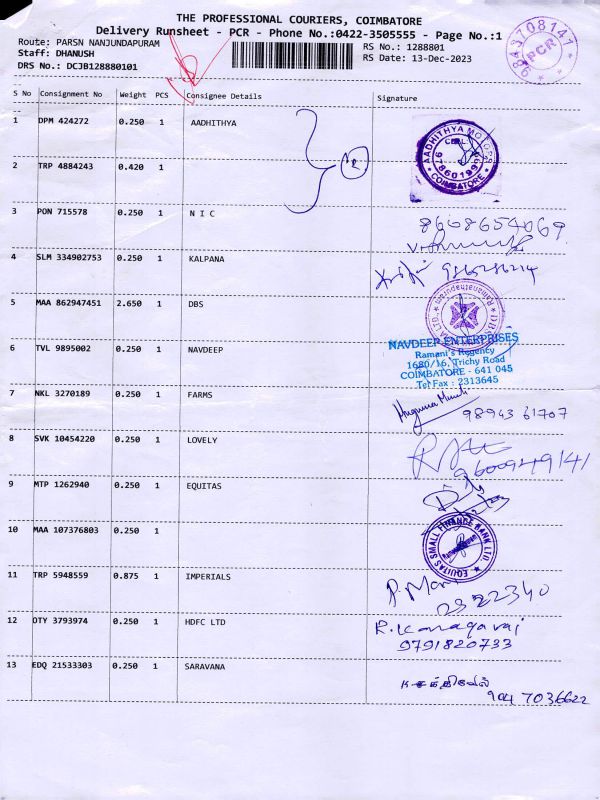 THE PROFESSIONAL COURIERS, COIMBATORE
Delivery Runsheet - PCR - Phone No.:0422-3505555 - Page No.:1
Route: PARSN NANJUNDAPURAM
Staff: DHANUSH
DRS No.: DCJB128880101
RS No.: 1288801
RS Date: 13-Dec-2023
9843708141
PCR
S No Consignment No Weight PCS Consignee Details Signature
1 DPM 424272 0.250 1 AADHITHYA
AADHITHYA MOTORS
COIMBATORE
2 TRP 4884243 0.420 1
3 PON 715578 0.250 1 N I C
8608654069
4 SLM 334902753 0.250 1 KALPANA
5 MAA 862947451 2.650 1 DBS
Ramanathapuram
6 TVL 9895002 0.250 1 NAVDEEP
NAVDEEP ENTERPRISES
Ramani's Regency
1680/16, Trichy Road
COIMBATORE - 641 045
Tel Fax : 2313645
7 NKL 3270189 0.250 1 FARMS
98943 61707
8 SVK 10454220 0.250 1 LOVELY
9600949141
9 MTP 1262940 0.250 1 EQUITAS
10 MAA 107376803 0.250 1
EQUITAS SMALL FINANCE BANK LTD
11 TRP 5948559 0.875 1 IMPERIALS
P. Mani
2322340
12 OTY 3793974 0.250 1 HDFC LTD
R. Kanagaraj
9791820733
13 EDQ 21533303 0.250 1 SARAVANA
க சக்திவேல்
9047036622